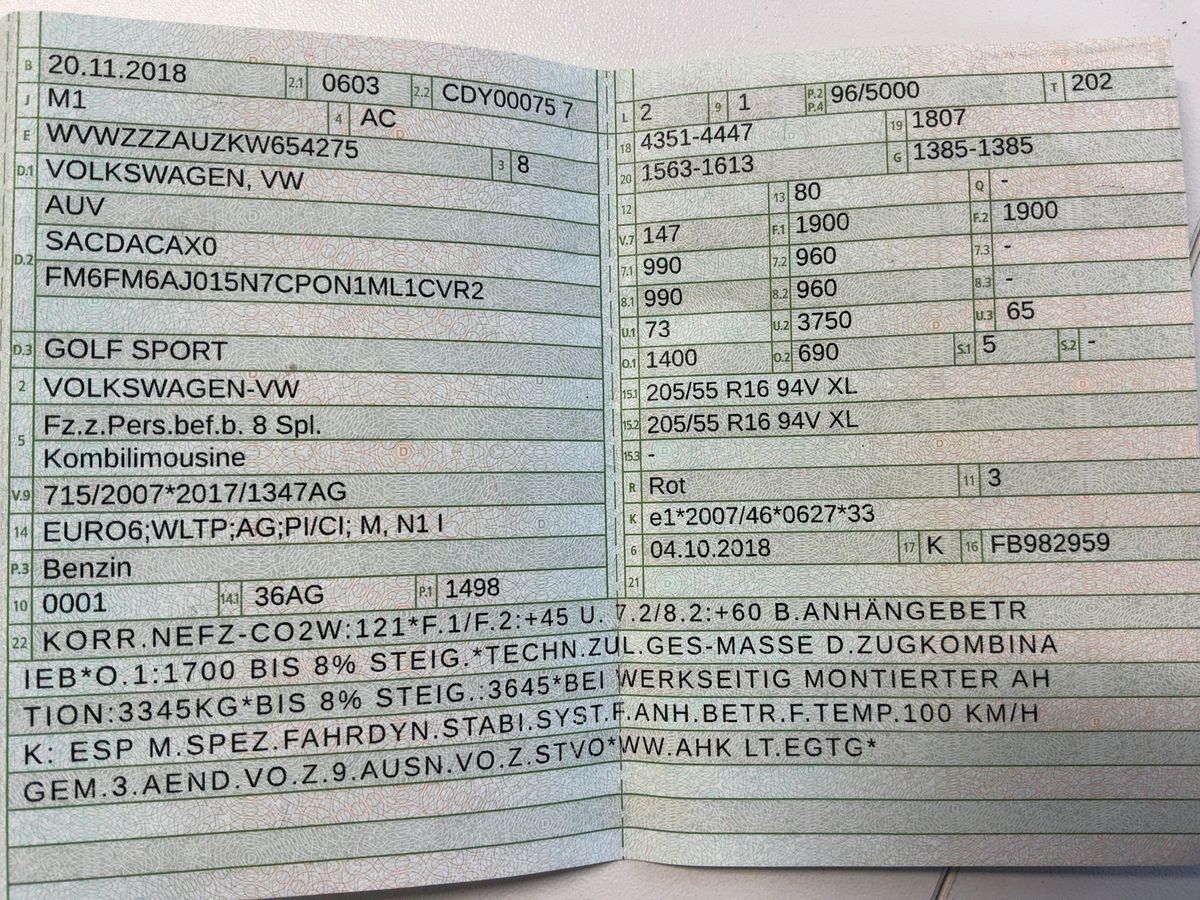 B 20.11.2018 2.1 0603 2.2 CDY00075 7
J M1 4 AC
E WVWZZZAUZKW654275 3 8
D.1 VOLKSWAGEN, VW
AUV
D.2 SACDACAX0
FM6FM6AJ015N7CPON1ML1CVR2
D.3 GOLF SPORT
2 VOLKSWAGEN-VW
5 Fz.z.Pers.bef.b. 8 Spl.
Kombilimousine
V.9 715/2007*2017/1347AG
14 EURO6;WLTP;AG;PI/CI; M, N1 I
P.3 Benzin
10 0001 14.1 36AG P.1 1498
L 2 9 1 P.2 P.4 96/5000 T 202
18 4351-4447 19 1807
20 1563-1613 G 1385-1385
12 13 80 Q -
V.7 147 F.1 1900 F.2 1900
7.1 990 7.2 960 7.3 -
8.1 990 8.2 960 8.3 -
U.1 73 U.2 3750 U.3 65
O.1 1400 O.2 690 S.1 5 S.2 -
15.1 205/55 R16 94V XL
15.2 205/55 R16 94V XL
15.3 -
R Rot 11 3
K e1*2007/46*0627*33
6 04.10.2018 17 K 16 FB982959
21
22 KORR.NEFZ-CO2W:121*F.1/F.2:+45 U. 7.2/8.2:+60 B.ANHÄNGEBETR
IEB*O.1:1700 BIS 8% STEIG.*TECHN.ZUL.GES-MASSE D.ZUGKOMBINA
TION:3345KG*BIS 8% STEIG.:3645*BEI WERKSEITIG MONTIERTER AH
K: ESP M.SPEZ.FAHRDYN.STABI.SYST.F.ANH.BETR.F.TEMP.100 KM/H
GEM.3.AEND.VO.Z.9.AUSN.VO.Z.STVO*WW.AHK LT.EGTG*